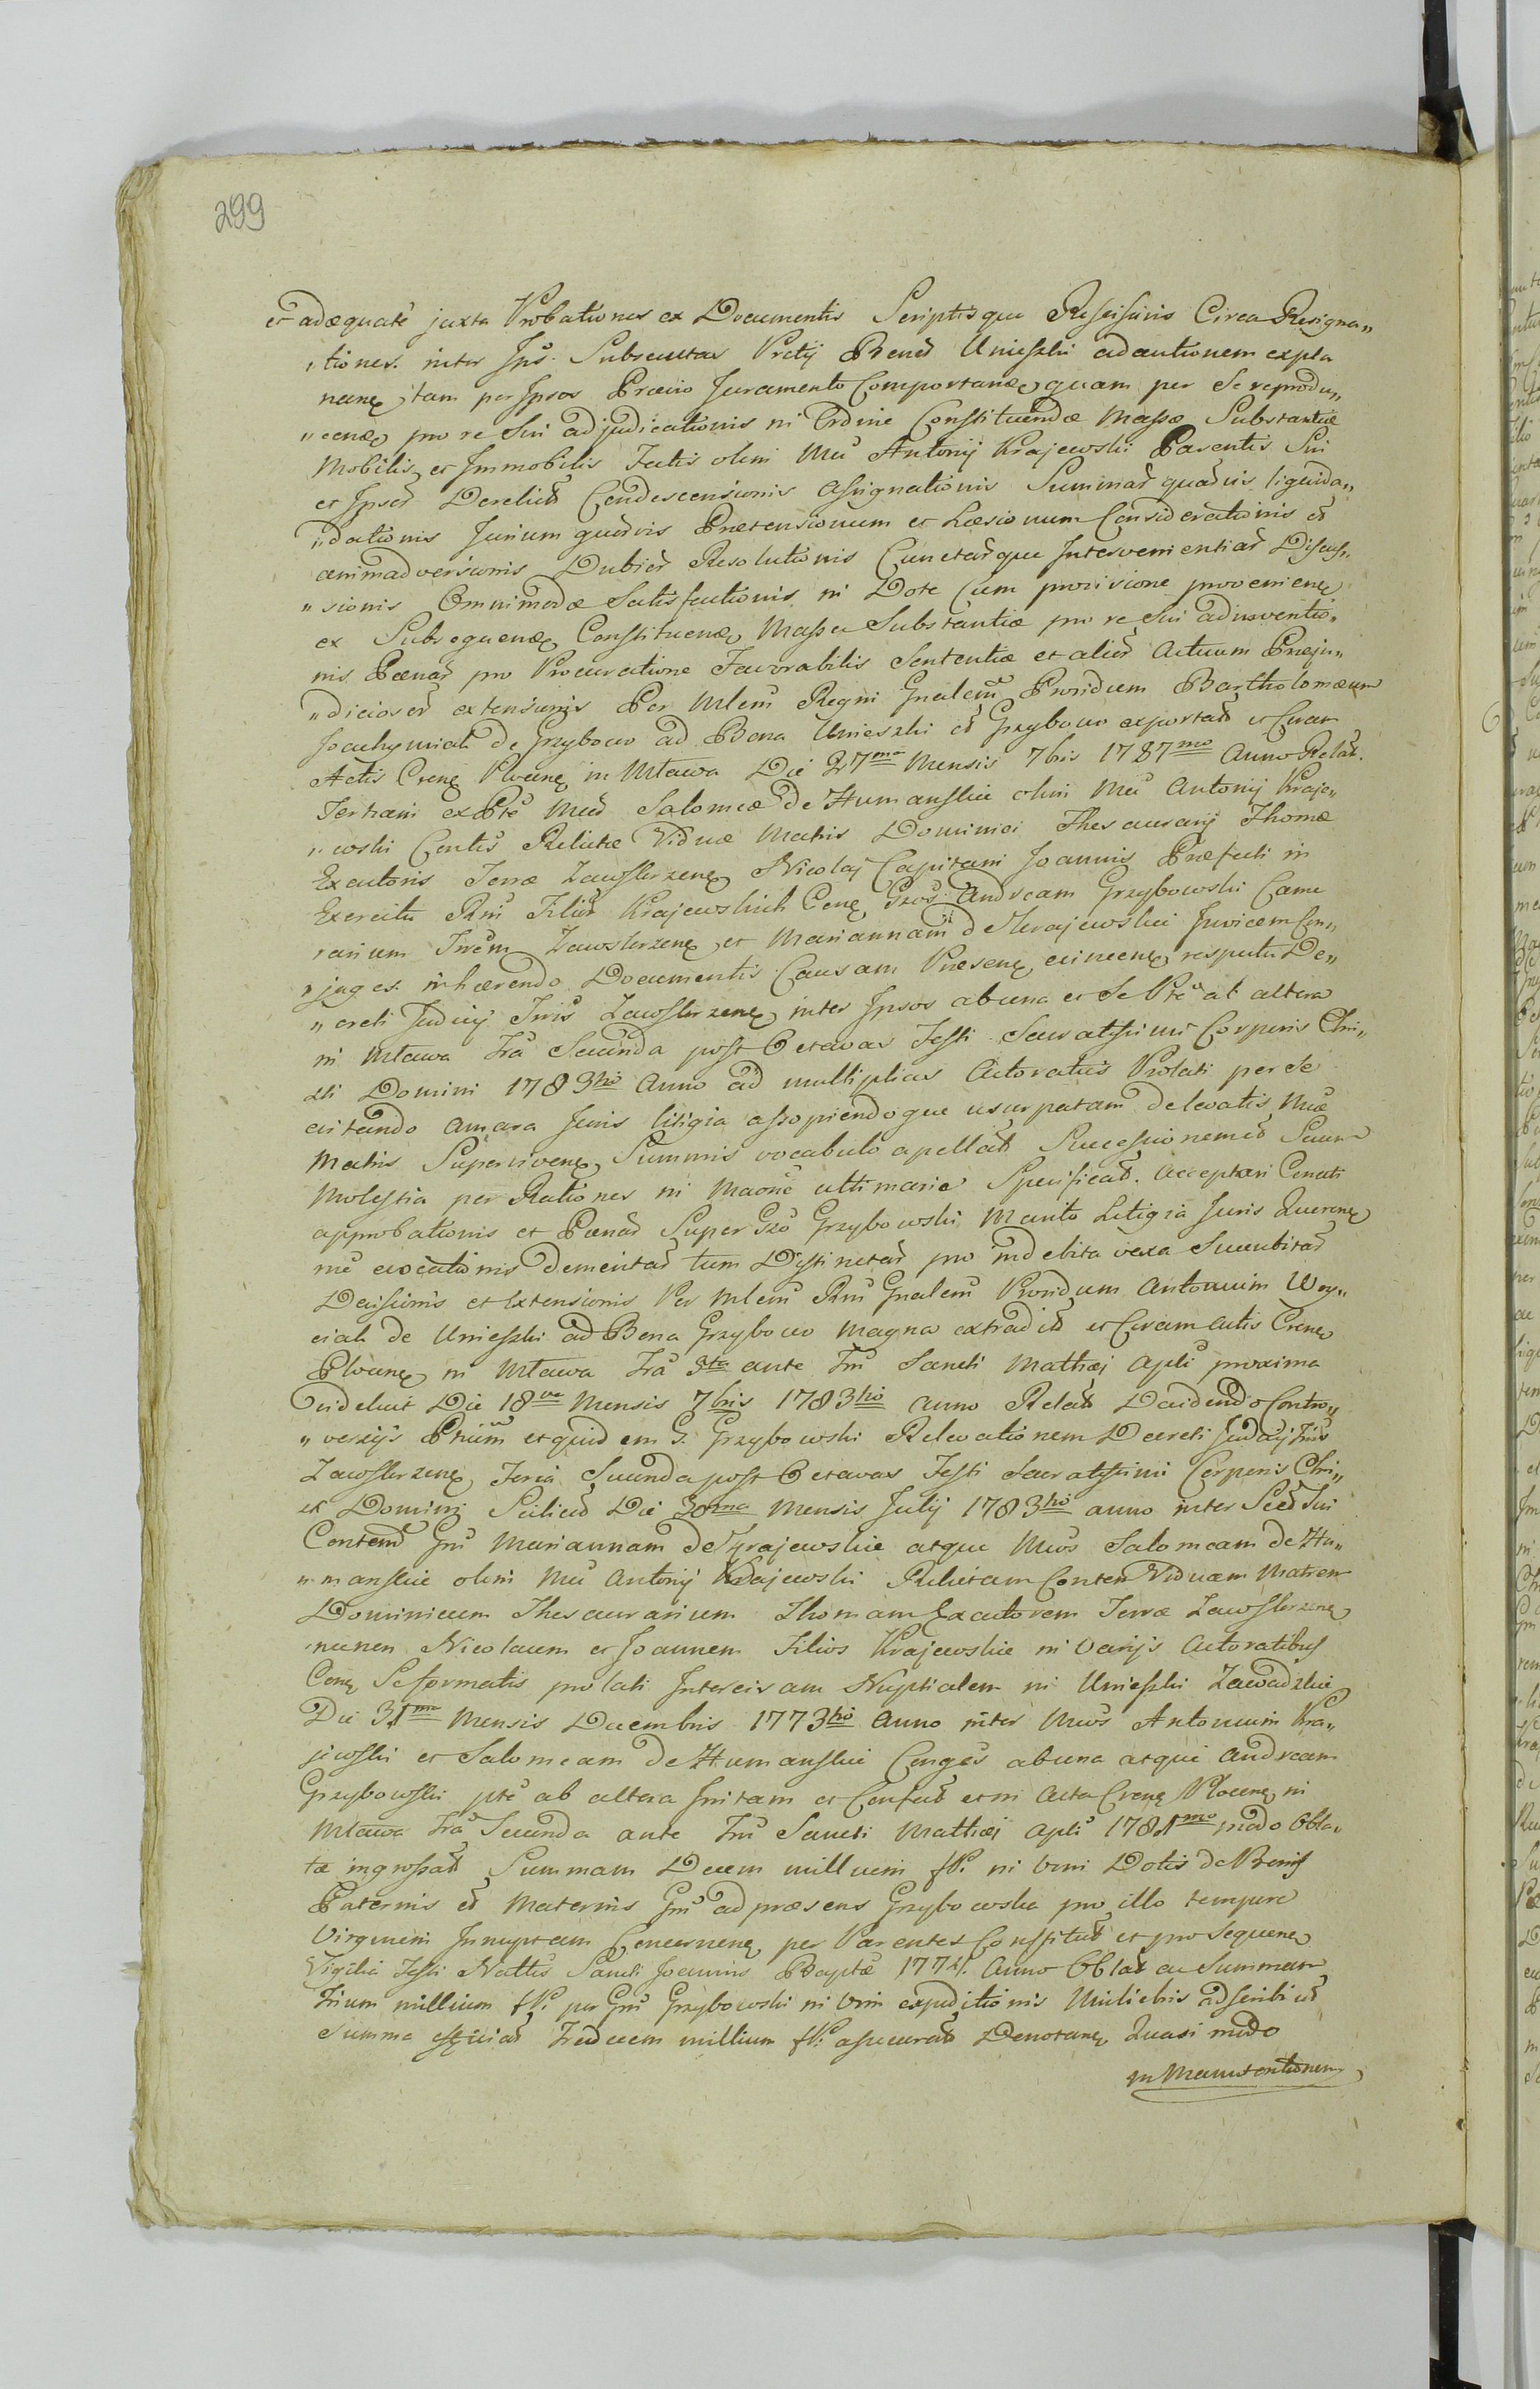 299
et adæquate juxta Probationes ex Documentis Scriptisque Rescissivis Circa Resigna„
„tiones inter Ips. Subsecutas Pretij Bonor Unieszki adautionem expla
nanę tam per Ipsos Prævio Juramento Comportanę, quam per Se reprodu„
„cenę pro re Sui adjudicationis in Ordine Constituendæ Massæ Substantiæ
Mobilis et Immobilis Fatis olim Mci Antonij Krajewski Parentis Sui
et Ipsor Derelict Condescensionis Assignationis Summar quarvis liquida„
„dationis Jurium quorvis Prætensionum et Læsionum Considerationis et
animadversionis Dubior Resolutionis Cunctarque Intervenientiar Discus„
„sionis Omnimodæ Satisfactionis in Dote Cum provisione provenienę
ex Subsequenę Constituenę Massa Substantiæ pro re Sui adinventio„
nis Pænar pro Procuratione Favorabilis Sententiæ et alior Actuum Præju„
„diciosor extensionis Per Mlem Regni Gnalem Providum Bartholomæum
Joachymiak de Grzybowo ad Bona Unieszki et Grzybowo exportat et Coram
Actis Crenę Plocenę in Mława Die 27ma Mensis 7bris 1787mo Anno Relat.
Tertiam ex Pte Mcor Salomeæ de Humanskie olim Mci Antonij Kraje„
„wski Contis Relictæ Viduæ Matris Dominici Thesaurarij Thomæ
Exactoris Terræ Zawskrzenę Nicolai Capitani Joannis Præfecti in
Exercitu Rni Filior Krajewskich Conę, Gsos Andream Grzybowski Came
rarium Trem Zawskrzenę et Mariannam de Krajewskie Invicem Con„
„juges inhærendo Documentis Causam Præsenę evincenę respectu De„
„creti Judicij Tris Zawskrzenę inter Ipsos ab una et Se Pte ab altera
in Mława Fra Secunda post Octavas Festi Sacratissimi Corporis Chri„
sti Domini 1783tio Anno ad multiplices Actoratus Prolati per Se
evitando amara Juris litigia assopiendoque usurpatam delevatis Mcæ
Matris Supervivenę Summis vocabulo apellat Successionemet Suum
Molestia per Rationes in Maone ultimarie Specificat. acceptari Cenati
approbationis et Pænar Super Gso Grzybowski Marito Litigia Juris Querenę
me evocationis dementar tum Distinctar pro indebita vexa Succubitar
Decisionis et Extensionis Per Mlem Rni Gnalem Providum Antonium Woy„
ciak de Unieszki ad Bona Grzybowo Magna extradit et Coram Actis Crenę
Plocenę in Mława Fra 3tia ante Fm Sancti Mathæi Apli proxima
videlicet Die 18va Mensis 7bris 1783tio anno Relat Decidendo Contro„
„versijs Ptium etquidem G. Grzybowski Relevationem Decreti Judicij Tris
Zawskrzenę Feria Secunda post Octavas Festi Sacratissimi Corporis Chri„
sti Domini Scilicet Die 30ma Mensis Julij 1783tio anno inter Sed Sui
Contem Gm Mariannam de Krajewskie atque Mcos Salomeam de Hu„
„manskie olim Mci Antonij Krajewski Relictam Conten Viduam Matrem
Dominicum Thesaurarium Thomam Exactorem Terræ Zawskrzenę
necnon Nicolaum et Joannem Filios Krajewskie in varijs Actoratibus
Conę Seformatis prolati Intercisam Nuptialem in Unieszki Zawadzkie
Die 31ma Mensis Decembris 1773tio Anno inter Mcos Antonium Kra„
jewski et Salomeam de Humanskie Conges ab una atque Andream
Grzybowski pte ab altera Initam et Confect et in Acta Crenę Plocenę in
Mława Fra Secunda ante Fm Sancti Mathæi Apli 1781mo modo Obla„
tæ ingrossat Summam Decem millium fl. in Vim Dotis de Bonis
Paternis et Maternis Gm adpræsens Grzybowska pro illo tempore
Virginem Innuptam Concernenę per Parentes Constitut et pro Sequenę
Vigilia Festi Nattis Sancti Joannis Baptæ 1774. Anno Oblat ac Summam
Trium millium fl. per Gm Grzybowski in Vim expeditionis Muliebris adscribi et
Summa efficiat Tredecem millium fl. assecurat Denotanę Quasi modo
in Manutentionem